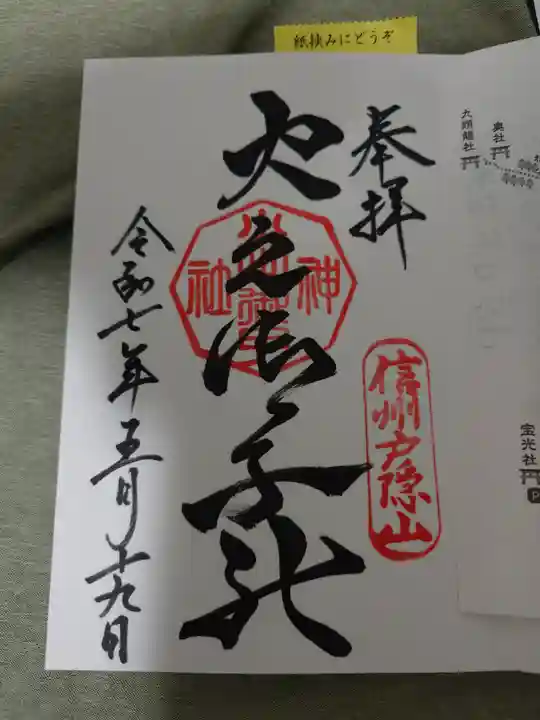 紙挟みにどうぞ
奉拝
信州戸隠山
火之御子社
神
社
令和七年五月十九日
九頭龍社
奥社
宝光社
P